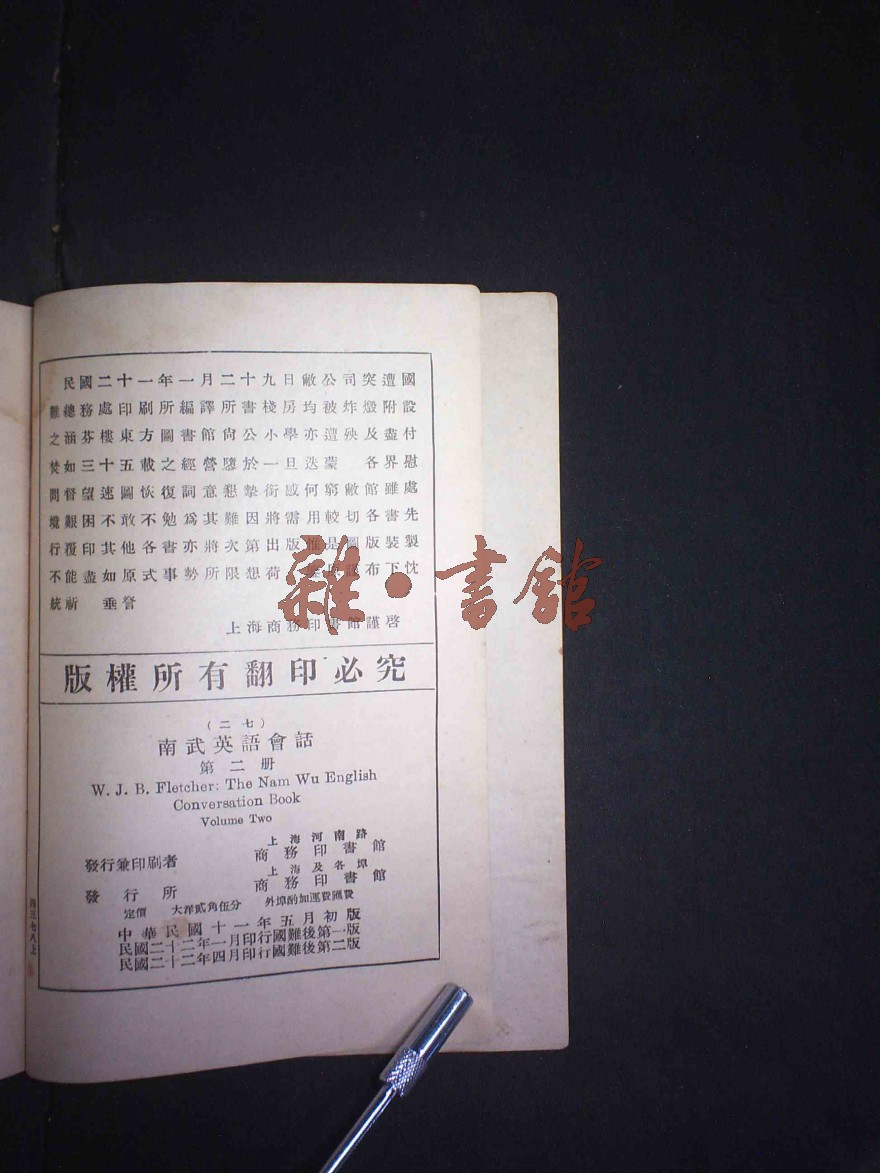 民國二十一年一月二十九日敝公司突遭國
難總務處印刷所編譯所書棧房均被炸燬附設
之涵芬樓東方圖書館尙公小學亦遭殃及盡付
焚如三十五載之經營隳於一旦迭蒙 各界慰
問督望速圖恢復詞意懇摯銜感何窮敝館雖處
境艱困不敢不勉爲其難因將需用較切各書先
行覆印其他各書亦將次第出版惟是圖版裝製
不能盡如原式事勢所限想荷 布下忱
統祈 垂詧
上海商務印書館謹啓
版權所有翻印必究
(二七)
南武英語會話
第二册
W. J. B. Fletcher: The Nam Wu English
Conversation Book
Volume Two
上海河南路
發行兼印刷者 商務印書館
上海及各埠
發行所 商務印書館
定價 大洋貳角伍分 外埠酌加運費匯費
中華民國十一年五月初版
民國二十二年一月印行國難後第一版
民國二十二年四月印行國難後第二版
三七八上
雜·書館